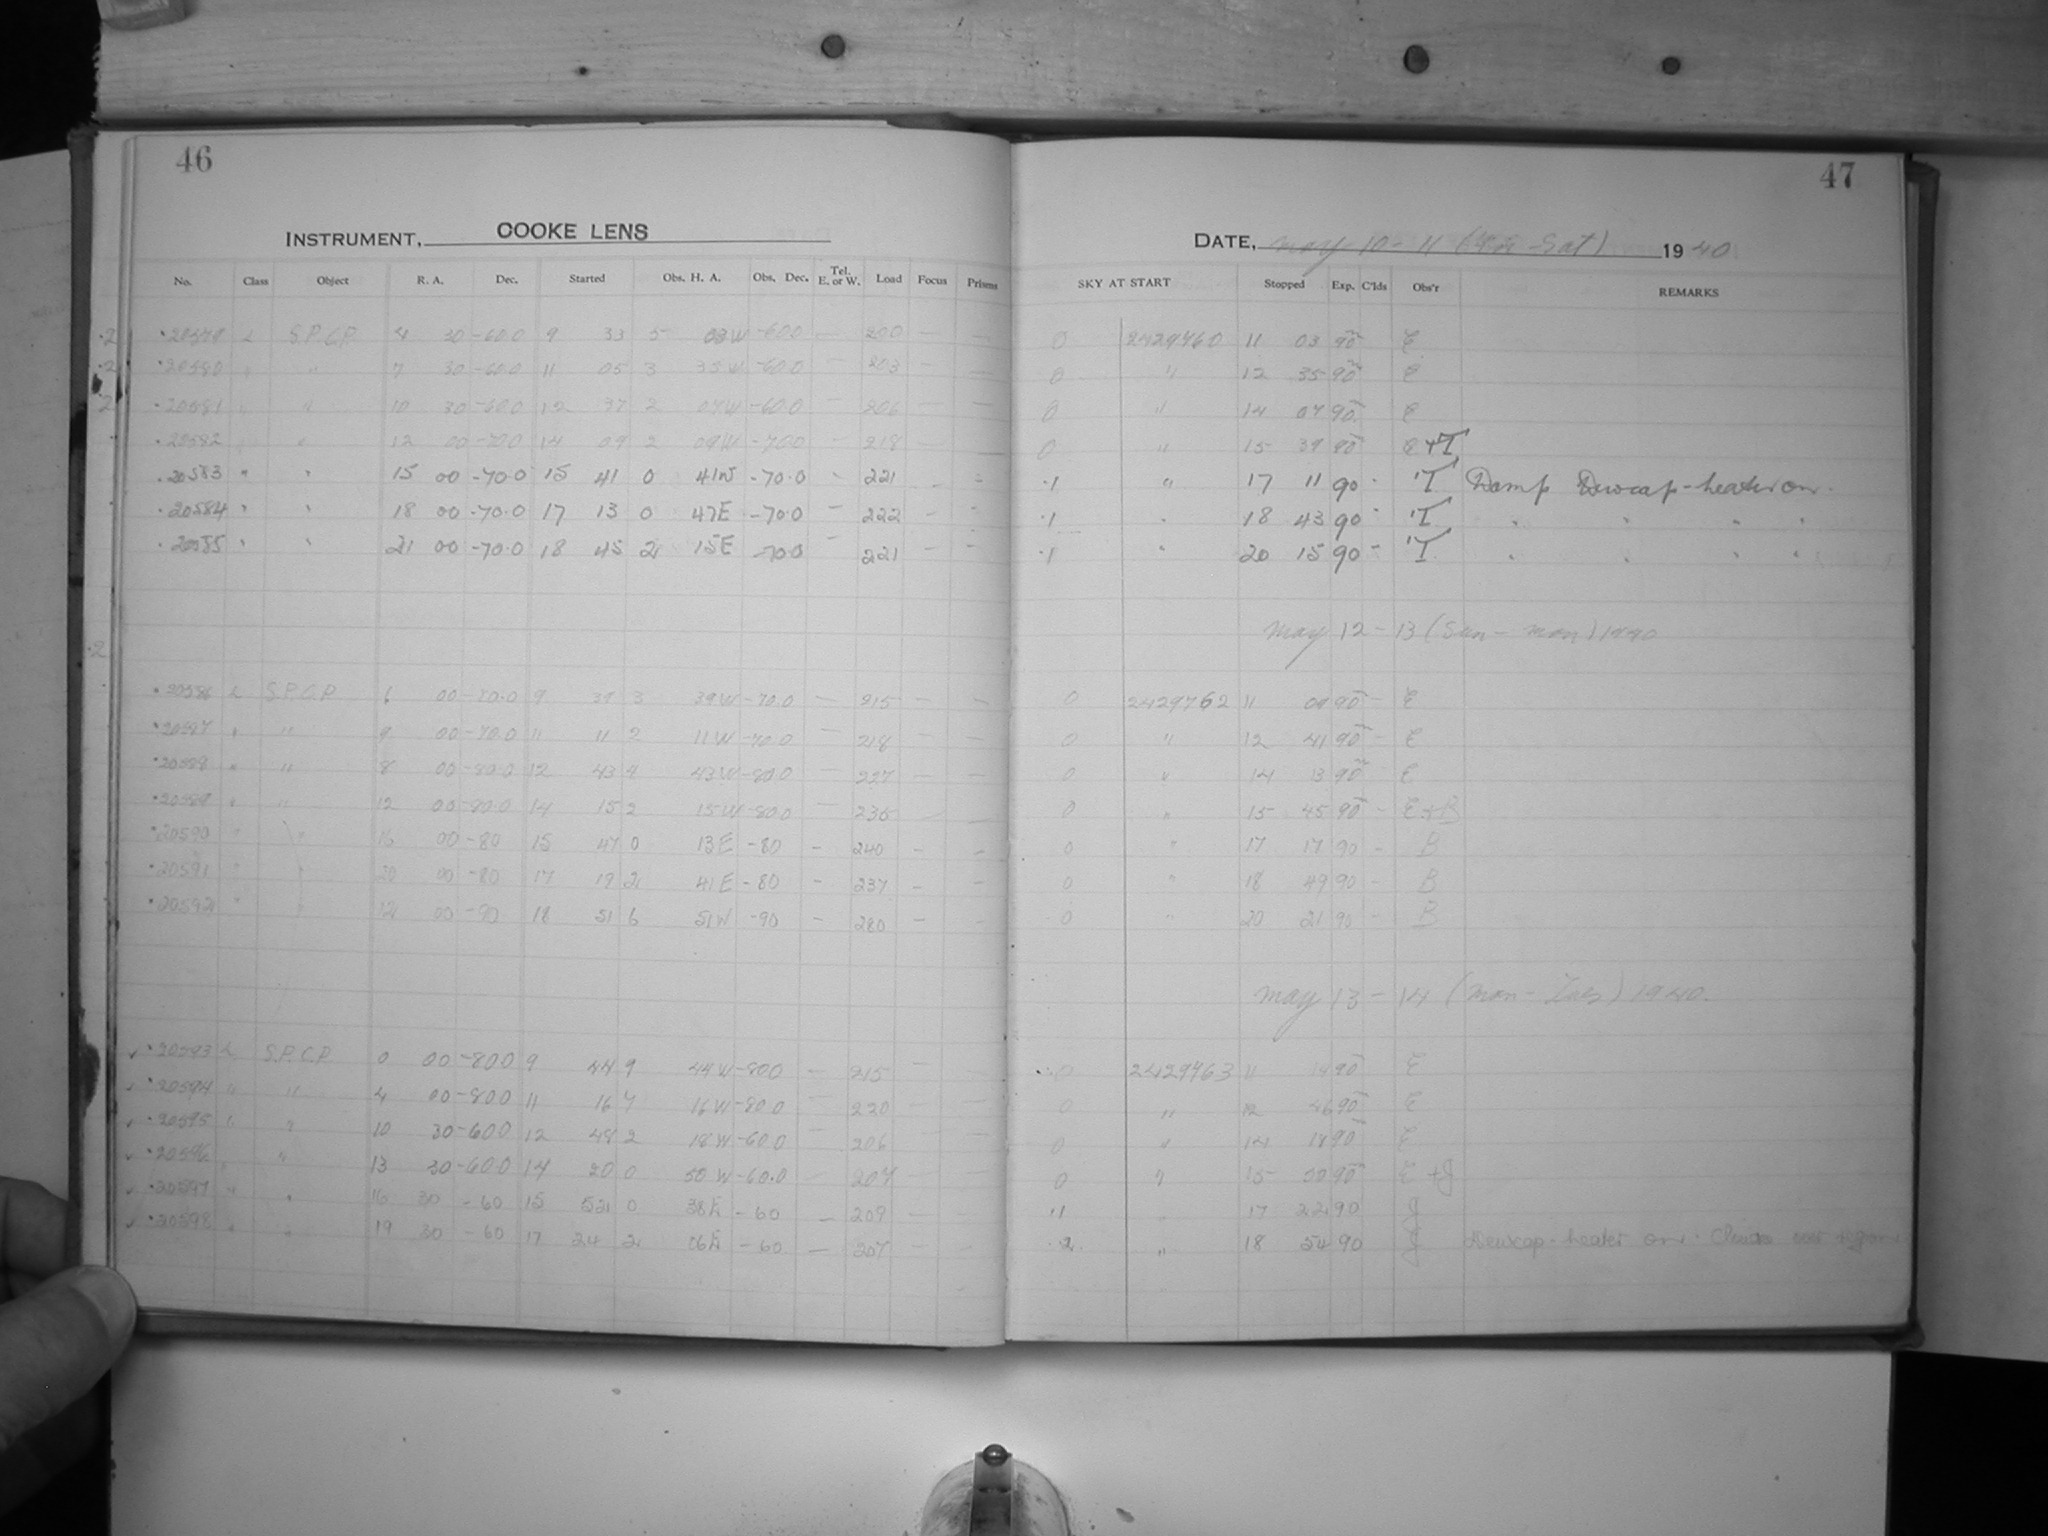 46
INSTRUMENT, COOKE LENS
No. Class Object R. A. Dec. Started Obs. H. A. Obs. Dec. Tel. E. or W. Load Focus Prisms
·20579 L S.P.C.P. 4 30 -60.0 9 33 5 03W -60.0 — 200 — —
·20580 " " 7 30 -60.0 11 05 3 35W -60.0 — 203 — —
·20581 " " 10 30 -60.0 12 37 2 07W -60.0 — 206 — —
·20582 " " 12 00 -70.0 14 09 2 09W -70.0 — 218 — —
·20583 " " 15 00 -70.0 15 41 0 41W -70.0 - 221 - -
·20584 " " 18 00 -70.0 17 13 0 47E -70.0 - 222 - -
·20585 " " 21 00 -70.0 18 45 2 15E -70.0 - 221 - -
·20586 L S.P.C.P. 6 00 -70.0 9 39 3 39W -70.0 — 215 — —
·20587 " " 9 00 -70.0 11 11 2 11W -70.0 — 218 — —
·20588 " " 8 00 -80.0 12 43 4 43W -80.0 — 227 — —
·20589 " " 12 00 -80.0 14 15 2 15W -80.0 — 236 — —
·20590 " " 16 00 -80 15 47 0 13E -80 - 240 - -
·20591 " " 20 00 -80 17 19 2 41E -80 - 237 - -
·20592 " " 12 00 -90 18 51 6 51W -90 - 280 - -
·20593 L S.P.C.P. 0 00 -80.0 9 44 9 44W -80.0 — 215 — —
·20594 " " 4 00 -80.0 11 16 7 16W -80.0 — 220 — —
·20595 " " 10 30 -60.0 12 48 2 18W -60.0 — 206 — —
·20596 " " 13 30 -60.0 14 20 0 50W -60.0 — 207 — —
·20597 " " 16 30 -60 15 52 0 38E -60 — 209 — —
·20598 " " 19 30 -60 17 24 2 06E -60 — 207 — —
47
DATE, May 10-11 (Fri-Sat) 1940
SKY AT START Stopped Exp. C'lds Obs'r REMARKS
0 2429760 11 03 90 — E
0 " 12 35 90 — E
0 " 14 07 90 — E
0 " 15 39 90 — E+T
·1 " 17 11 90 - T Damp Dewcap-heater on.
·1 " 18 43 90 - T " " " "
·1 " 20 15 90 - T " " " "
May 12-13 (Sun-Mon) 1940
0 2429762 11 09 90 — E
0 " 12 41 90 — E
0 " 14 13 90 — E
0 " 15 45 90 — E+B
0 " 17 17 90 - B
0 " 18 49 90 - B
0 " 20 21 90 - B
May 13-14 (Mon-Tues) 1940.
0 2429763 11 14 90 — E
0 " 12 46 90 — E
0 " 14 18 90 — E
0 " 15 50 90 — E+J
·1 " 17 22 90 J
·2 " 18 54 90 J Dewcap-heater on. Clouds over region